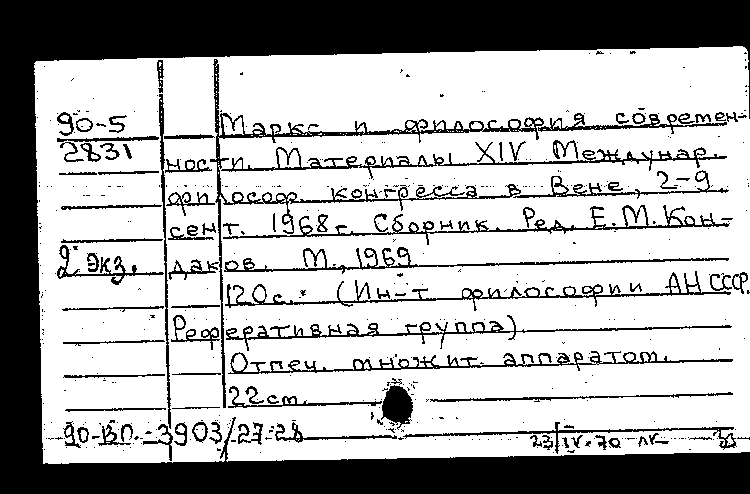 90-5 Маркс и философия современ-
2831 ности. Материалы XIV Междунар.
философ. конгресса в Вене, 2-9
сент. 1968г. Сборник. Ред. Е.М.Кон-
2 экз. даков. М., 1969
120с. (Ин-т философии АН СССР.
Реферативная группа).
Отпеч. множит. аппаратом.
22см.
90-ВП.-3903/27-28 23/IV-70 лк